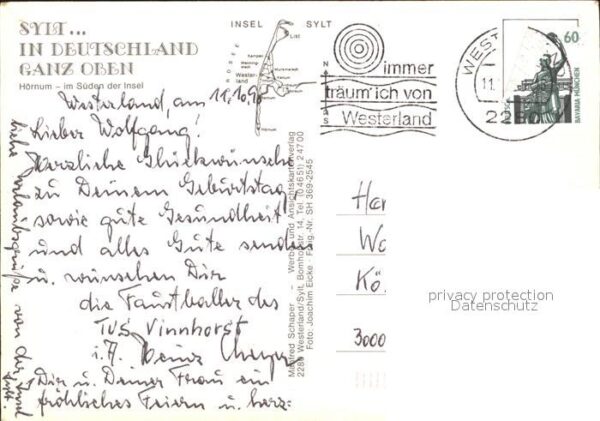 SYLT...
IN DEUTSCHLAND
GANZ OBEN
Hörnum – im Süden der Insel
INSEL SYLT
List
Kampen
Westerland
Hörnum
N
S
immer
träum' ich von
Westerland
WEST
11.
22
60
BAYARIA MÜNCHEN
Westerland, am 11.10.90
Lieber Wolfgang!
Herzliche Glückwünsche
zu Deinem Geburtstag
sowie gute Gesundheit
und alles Gute senden
u. wünschen Dir
die Faustballer des
TUS Vinnhorst
i. A. Heinz
Dir u. Deiner Frau ein
fröhliches Feiern u. herz-
liche Urlaubsgrüße von der Insel
Sylt.
Manfred Schaper – Werbe- und Ansichtskartenverlag
2280 Westerland/Sylt, Bomhoffstr. 14, Tel. (04651) 24700
Foto: Joachim Eicke · Freig.-Nr. SH 369-2545
Her
Wo
Kö
3000
privacy protection
Datenschutz